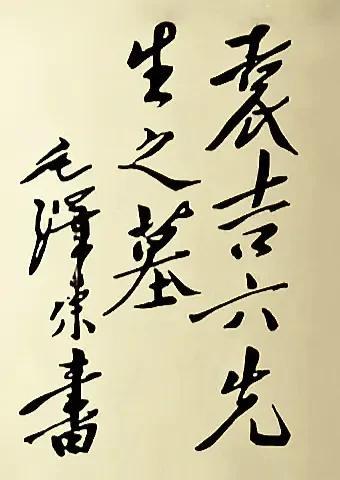 袁吉六先
生之墓
毛澤东書